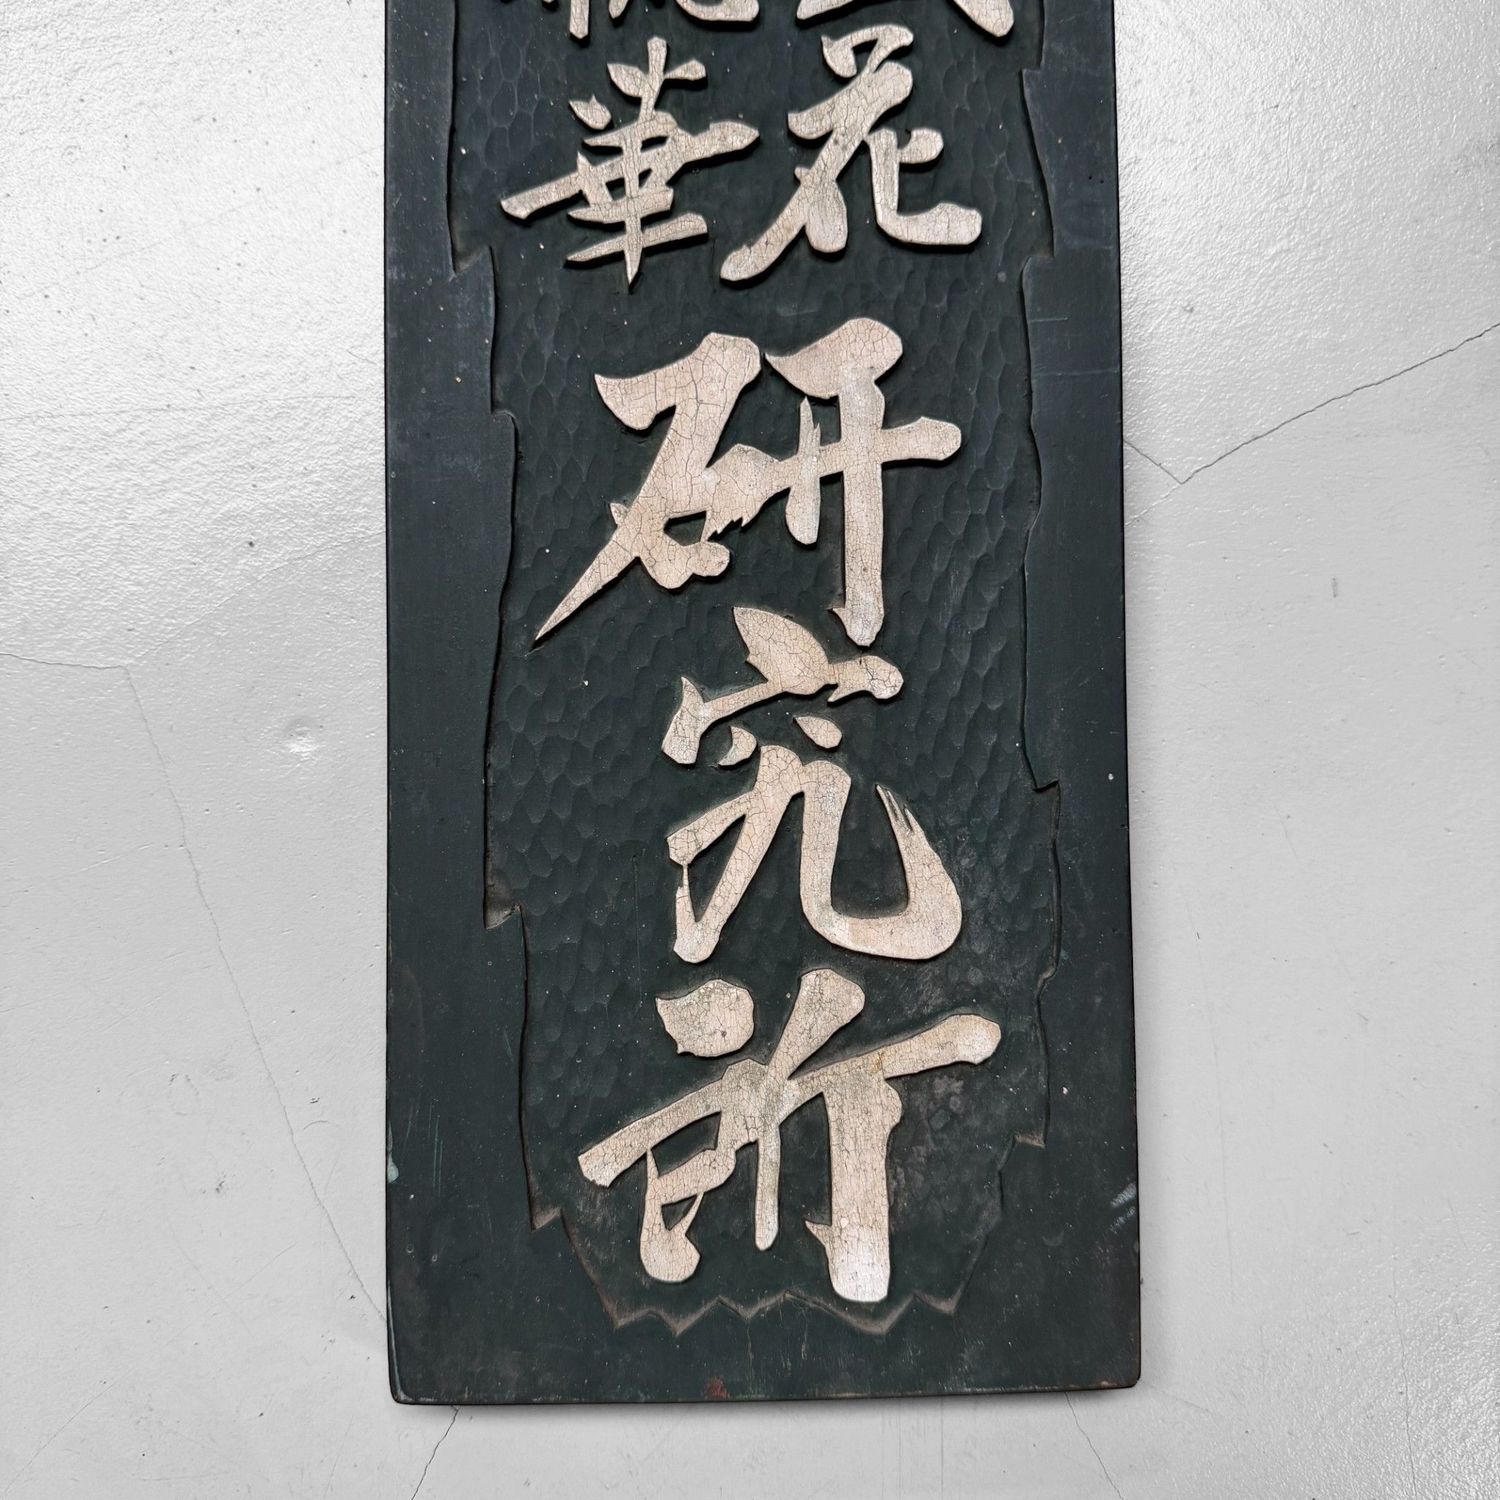 花
華
研究所